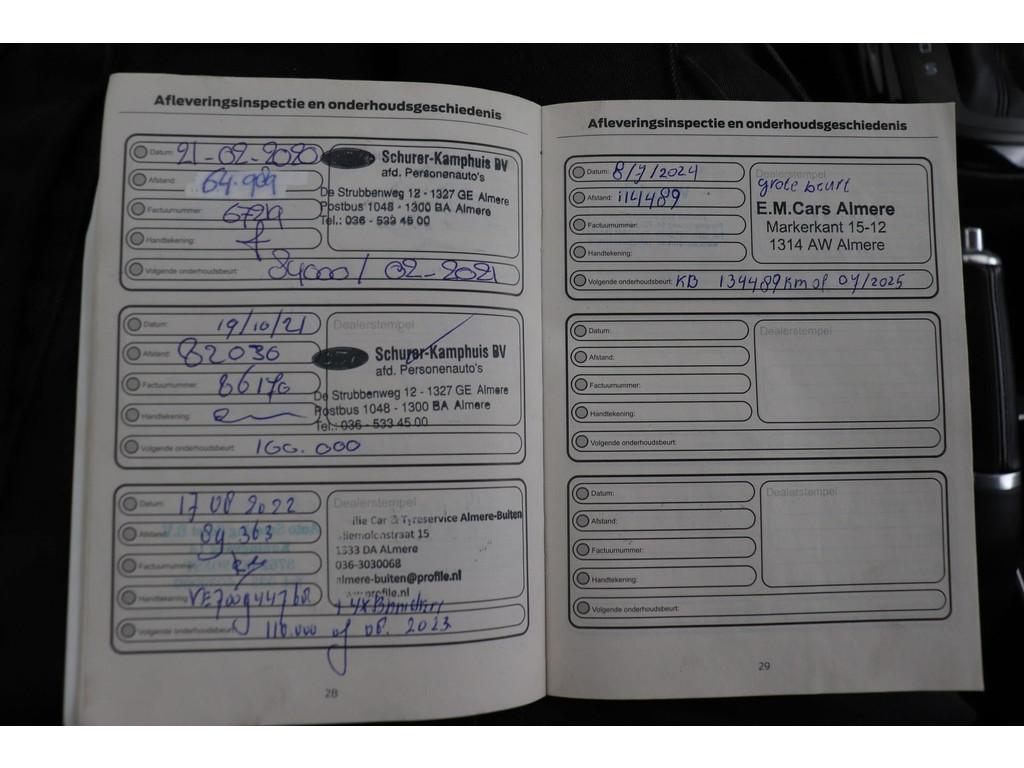 Afleveringsinspectie en onderhoudsgeschiedenis
Datum: 21-02-2020
Afstand: 64.989
Factuurnummer: 6729
Handtekening:
Volgende onderhoudsbeurt: 84000 / 02-2021
Schurer-Kamphuis BV
afd. Personenauto's
De Strubbenweg 12 - 1327 GE Almere
Postbus 1048 - 1300 BA Almere
Tel.: 036 - 533 45 00
Datum: 19/10/21
Afstand: 82036
Factuurnummer: 86170
Handtekening:
Volgende onderhoudsbeurt: 100.000
Dealerstempel
Schurer-Kamphuis BV
afd. Personenauto's
De Strubbenweg 12 - 1327 GE Almere
Postbus 1048 - 1300 BA Almere
Tel.: 036 - 533 45 00
Datum: 17 08 2022
Afstand: 89.363
Factuurnummer:
Handtekening:
Volgende onderhoudsbeurt: 110.000 of 08. 2023
Dealerstempel
Car & Tyreservice Almere-Buiten
1333 DA Almere
036-3030068
almere-buiten@profile.nl
28
Afleveringsinspectie en onderhoudsgeschiedenis
Datum: 8/7/2024
Afstand: 114489
Factuurnummer:
Handtekening:
Volgende onderhoudsbeurt: KB 134489 km of 07/2025
Dealerstempel
grote beurt
E.M.Cars Almere
Markerkant 15-12
1314 AW Almere
Datum:
Afstand:
Factuurnummer:
Handtekening:
Volgende onderhoudsbeurt:
Dealerstempel
Datum:
Afstand:
Factuurnummer:
Handtekening:
Volgende onderhoudsbeurt:
Dealerstempel
29